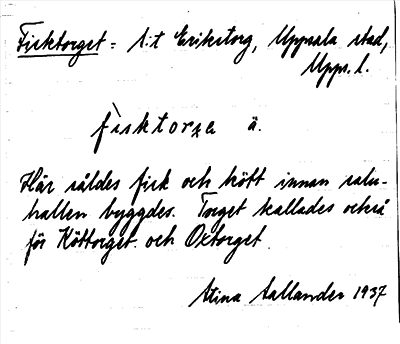 Fisktorget = S:t Erikstorg, Uppsala stad,
Upps. l.
fìsktorʒa ä.
Här såldes fisk och kött innan salu-
hallen byggdes. Torget kallades också
för Köttorget och Oxtorget.
Stina Sallander 1937